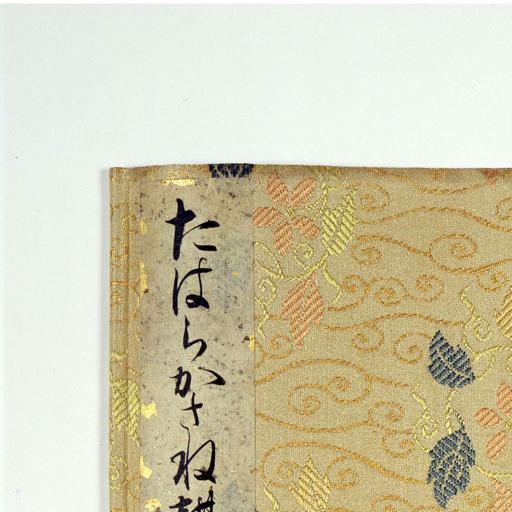 たはらかさね耕